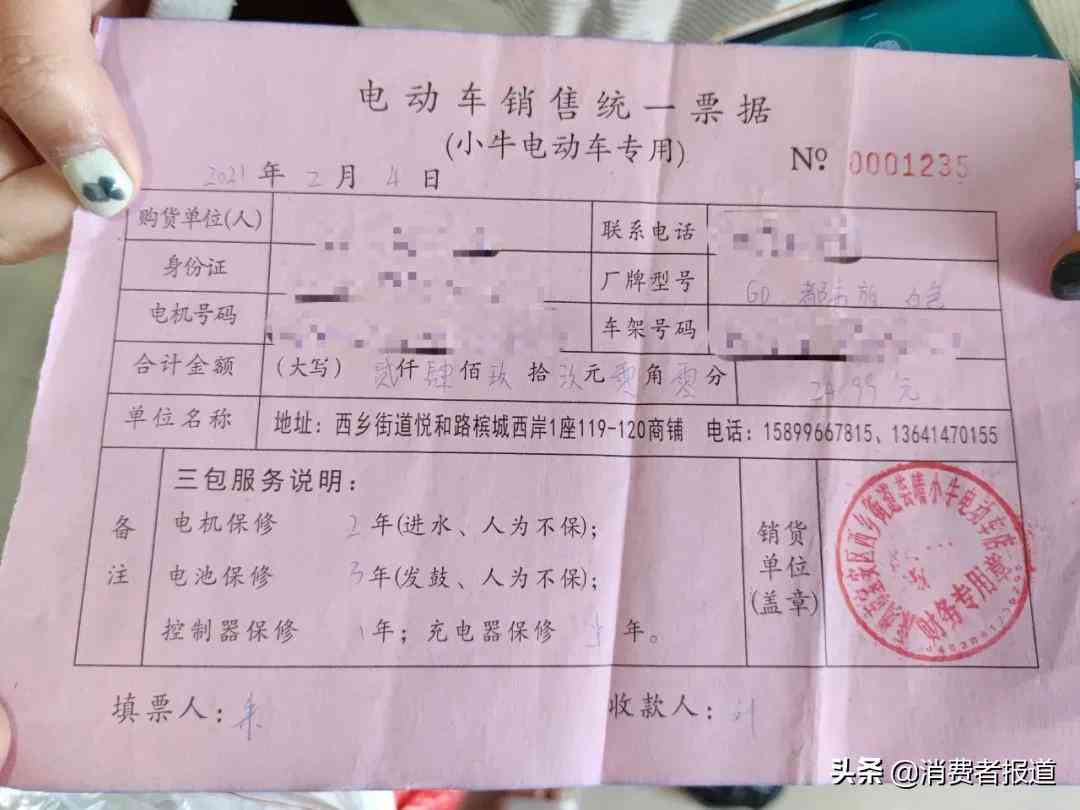 电动车销售统一票据
(小牛电动车专用)
№ 0001235
2021 年 2 月 4 日
购货单位(人) 联系电话
身份证 厂牌型号 GD 都市版 白色
电机号码 车架号码
合计金额 (大写) 贰仟肆佰玖拾玖元零角零分 2499元
单位名称 地址：西乡街道悦和路槟城西岸1座119-120商铺 电话：15899667815、13641470155
备注 三包服务说明：
电机保修 2 年(进水、人为不保)；
电池保修 3 年(发鼓、人为不保)；
控制器保修 1 年；充电器保修 年。
销货单位(盖章)
宝安区西乡街道芸晴小牛电动车店
财务专用章
填票人： 朱
收款人： 刘
头条 @消费者报道